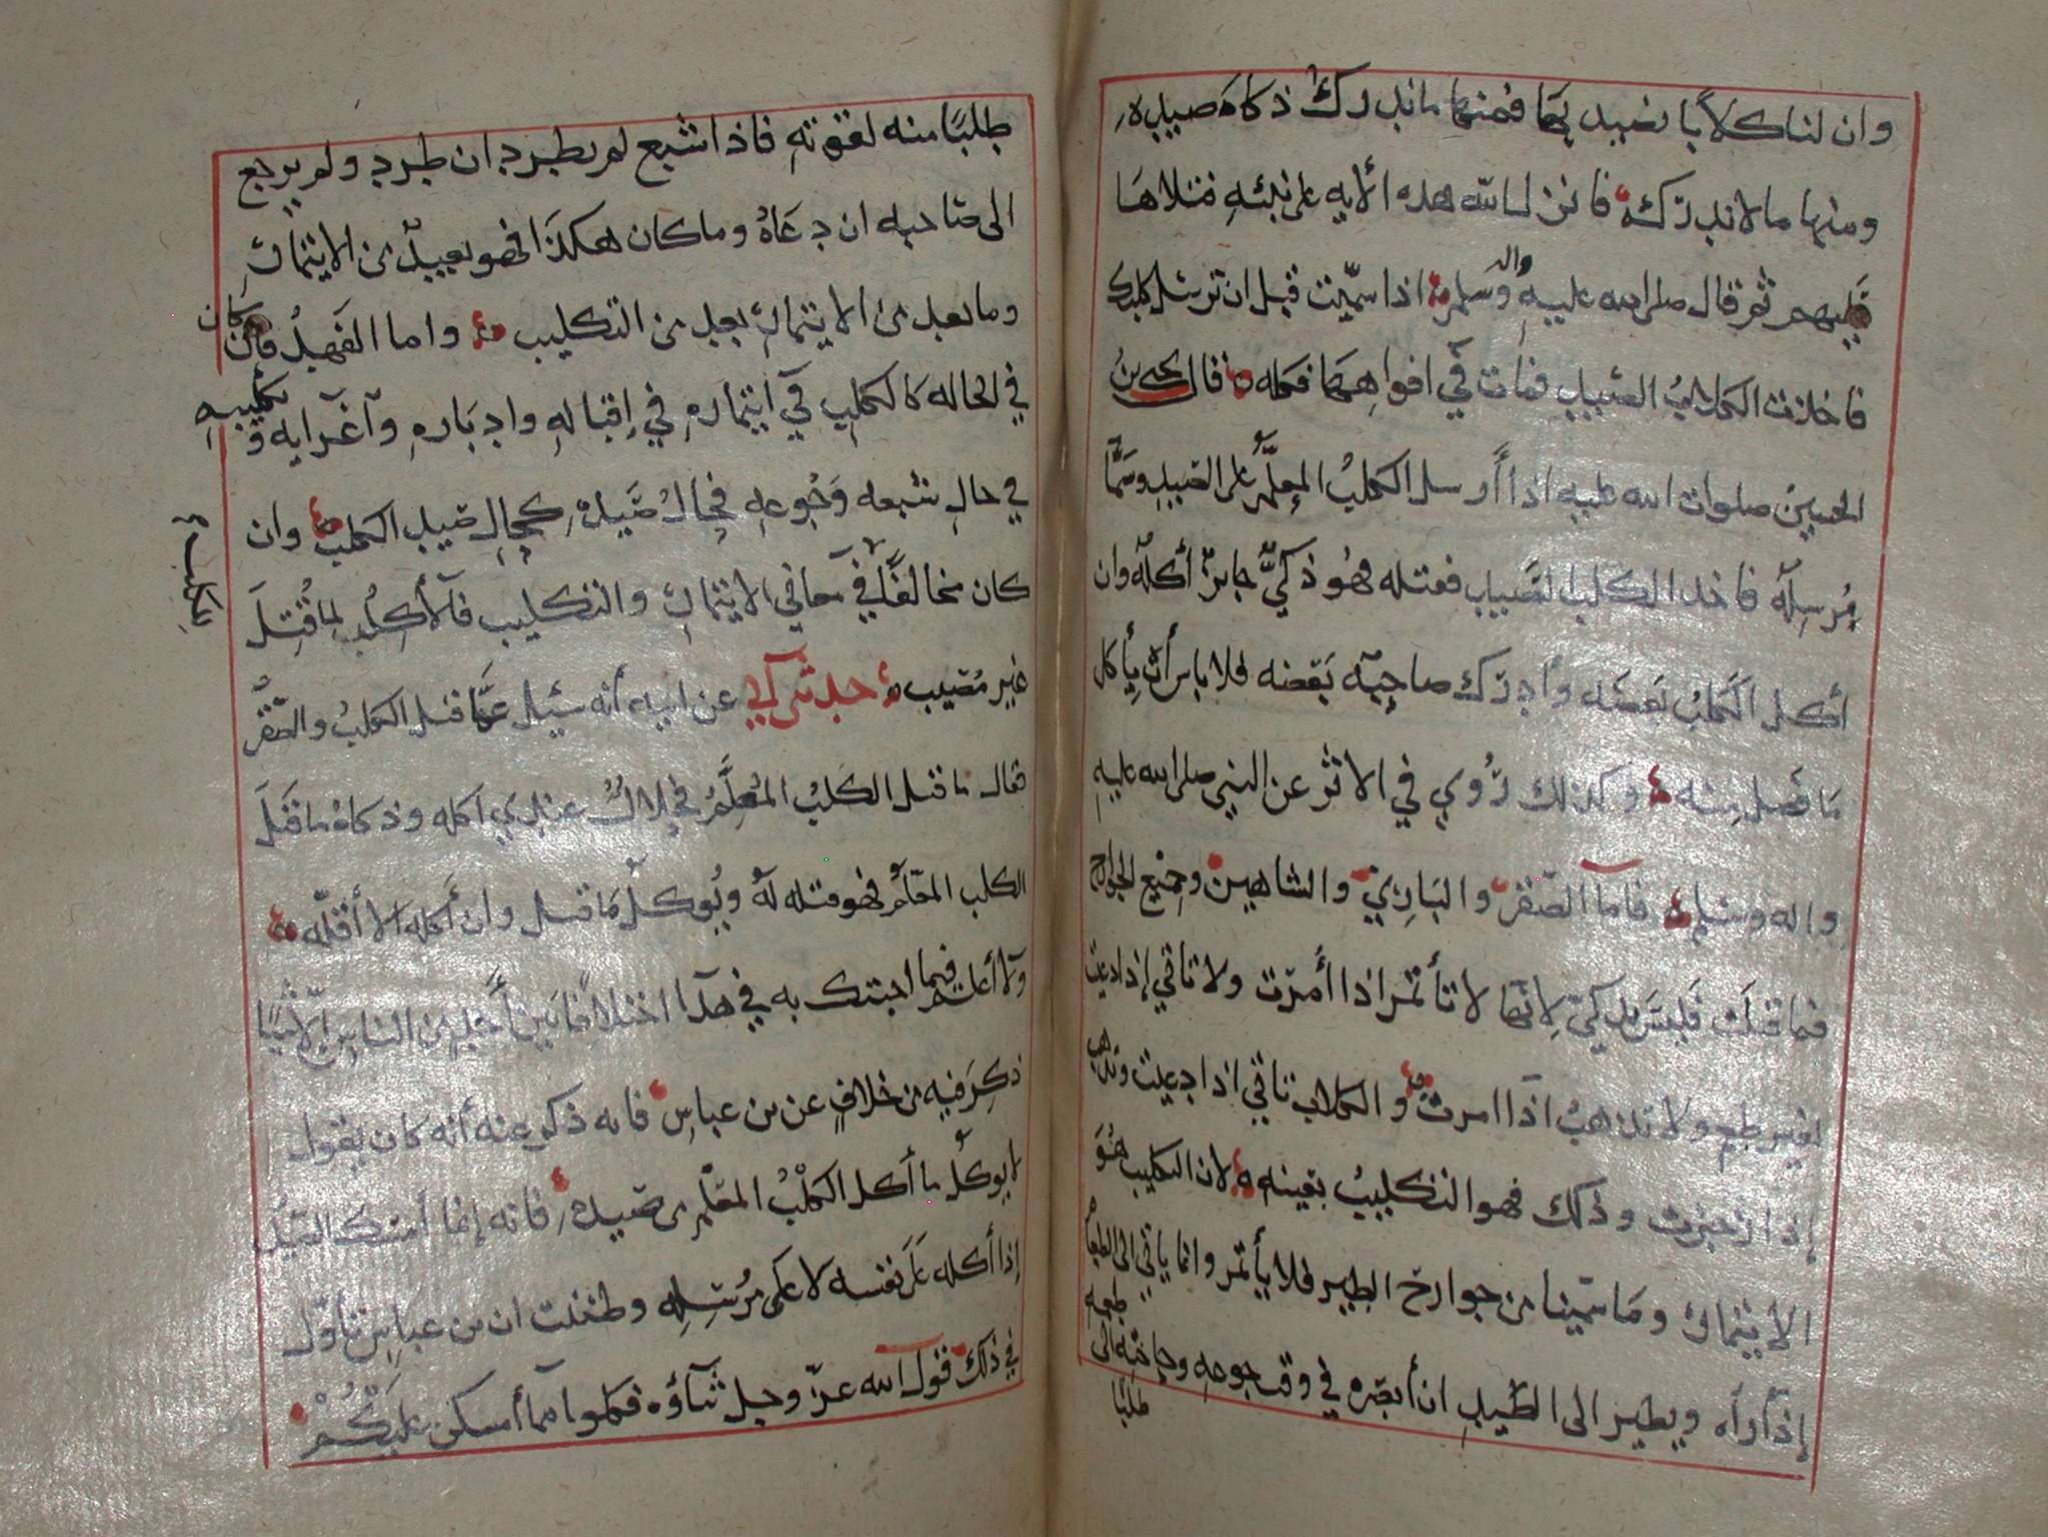 وان لنا كلابا نصيد بها فمنها ما ندرك ذكاة صيده
ومنها ما لا ندرك فانزل الله هذه الأيه على نبئه فتلاها
عليهم ثم قال صلى الله عليه واله وسلم اذا سميت قبل ان ترسل كلبك
فاخذت الكلاب الصيد فمات في افواهها فكله قال يحيى بن
الحسين صلوات الله عليه اذا أرسل الكلب المعلم على الصيد وسما
مرسله فاخذ الكلب الصيد فقتله فهو ذكي جايز أكله وان
أكل الكلب بعضه وأدرك صاحبه بعضه فلا باس أن يأكل
ما فضل منه وكذلك روي في الاثر عن النبي صلى الله عليه
واله وسلم فاما الصقر والبازي والشاهين وجميع الجوارح
فما قتلت فليس بذكي لانها لا تأتمر اذا أمرت ولا تاتي إذا دعيت
لغير طمع ولا تذهب اذا امرت والكلاب تاتي اذا دعيت وتذهب
إذا زجرت وذلك فهو التكليب بعينه لان التكليب هو
الايتمار وما سمينا من جوارح الطير فلا يأتمر وانما ياتي الى الطعام
إذا رآه ويطير الى الصيد ان أبصره في وقت جوعه وحاجته الى طعمه
طلبا
طلبا منه لقوته فاذا شبع لم يطرد ان طرد ولم يرجع
الى صاحبه ان دعاه وما كان هكذا فهو بعيد من الايتمار
وما بعد من الايتمار بعد من التكليب واما الفهد فان كان
في الحاله كالكلب في ايتماره في إقباله وادباره وآغرايه وتكليبه
في حال شبعه وجوعه فحال صيده كحال صيد الكلب وان
كان مخالفا في معاني الايتمار والتكليب فلا أكل لما قتل
غير مصيب حدثني ابي عن ابيه أنه سئل عما قتل الكلب والصقر
فقال ما قتل الكلب المعلم فحلال عندي اكله وذكاة ما قتل
الكلب المعلم فهو قتله له ويوكل ما قتل وان أكله الا أقله
ولا أعلم فيما اجبتك به في هذا اختلافا بين أحد من الناس إلا شيا
ذكر فيه من خلاف عن بن عباس فانه ذكر عنه أنه كان يقول
لا يوكل ما أكل الكلب المعلم من صيده فانه إنما أمسك الصيد
إذا أكله على نفسه لا على مرسله وظننت ان بن عباس تأول
في ذلك قول الله عز وجل ثناؤه فكلوا مما أمسكن عليكم